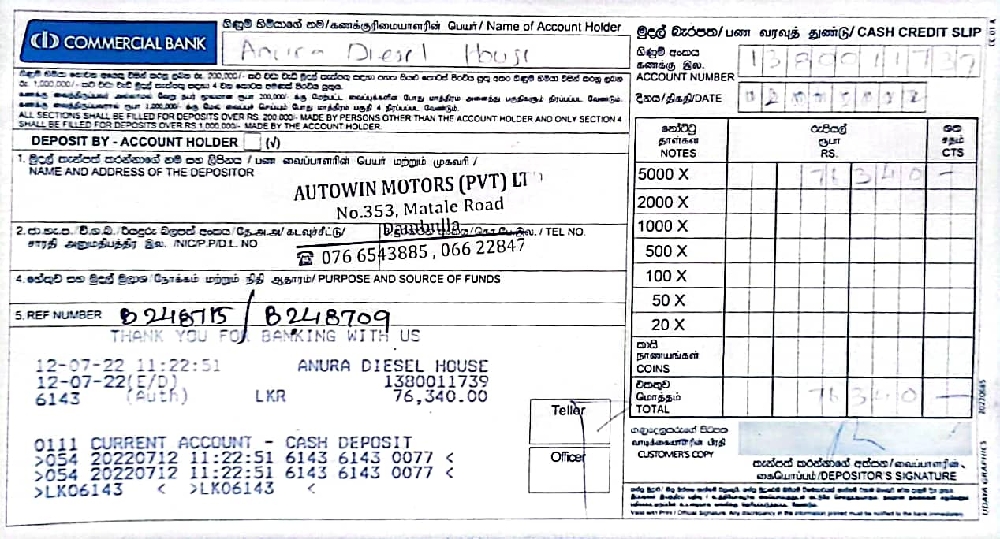 COMMERCIAL BANK
ගිණුම් හිමියාගේ නම/கணக்குரிமையாளரின் பெயர்/ Name of Account Holder
Anura Diesel House
ALL SECTIONS SHALL BE FILLED FOR DEPOSITS OVER RS. 200,000/- MADE BY PERSONS OTHER THAN THE ACCOUNT HOLDER AND ONLY SECTION 4
SHALL BE FILLED FOR DEPOSITS OVER RS 1,000,000/- MADE BY THE ACCOUNT HOLDER.
DEPOSIT BY - ACCOUNT HOLDER (√)
1. මුදල් තැන්පත් කරන්නාගේ නම සහ ලිපිනය / பண வைப்பாளரின் பெயர் மற்றும் முகவரி /
NAME AND ADDRESS OF THE DEPOSITOR
AUTOWIN MOTORS (PVT) LT
No.353, Matale Road
Dambulla
☎ 076 6543885, 066 22847
சாரதி அனுமதிப்பத்திர இல. /NIC/P.P/D.L. NO
TEL NO.
4. හේතුව සහ මුදල් මූලාශ්‍ර/நோக்கம் மற்றும் நிதி ஆதாரம்/ PURPOSE AND SOURCE OF FUNDS
5. REF NUMBER B248715 / B248709
THANK YOU FOR BANKING WITH US
12-07-22 11:22:51 ANURA DIESEL HOUSE
12-07-22(E/D) 1380011739
6143 (Auth) LKR 76,340.00
0111 CURRENT ACCOUNT - CASH DEPOSIT
>054 20220712 11:22:51 6143 6143 0077 <
>054 20220712 11:22:51 6143 6143 0077 <
>LK06143 < >LK06143 <
Teller
Officer
මුදල් බැරපත/ பண வரவுத் துண்டு/ CASH CREDIT SLIP
ගිණුම් අංකය
கணக்கு இல.
ACCOUNT NUMBER
දිනය/திகதி/DATE
නෝට්ටු
தாள்கள்
NOTES
රුපියල්
ரூபா
RS.
ශත
சதம்
CTS
5000 X 76 340 —
2000 X
1000 X
500 X
100 X
50 X
20 X
කාසි
நாணயங்கள்
COINS
එකතුව
மொத்தம்
TOTAL 76 340 —
வாடிக்கையாளரின் பிரதி
CUSTOMER'S COPY
තැන්පත් කරන්නාගේ අත්සන/வைப்பாளரின்
கையொப்பம்/DEPOSITOR'S SIGNATURE